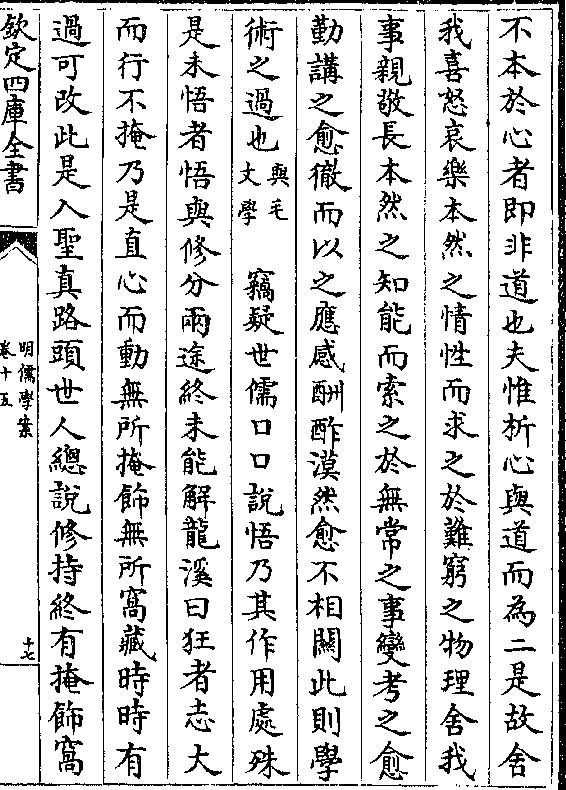 不本於心者即非道也夫惟析心與道而為二是故舍
我喜怒哀樂本然之情性而求之於難窮之物理舍我
事親敬長本然之知能而索之於無常之事變考之愈
勤講之愈徹而以之應感酬酢漠然愈不相關此則學
術之過也與毛文學　竊疑世儒口口說悟乃其作用處殊
是未悟者悟與修分兩途終未能解龍溪曰狂者志大
而行不掩乃是直心而動無所掩飾無所窩藏時時有
過可改此是入聖真路頭世人總說修持終有掩飾窩
欽定四庫全書
明儒學案
卷十五
十七